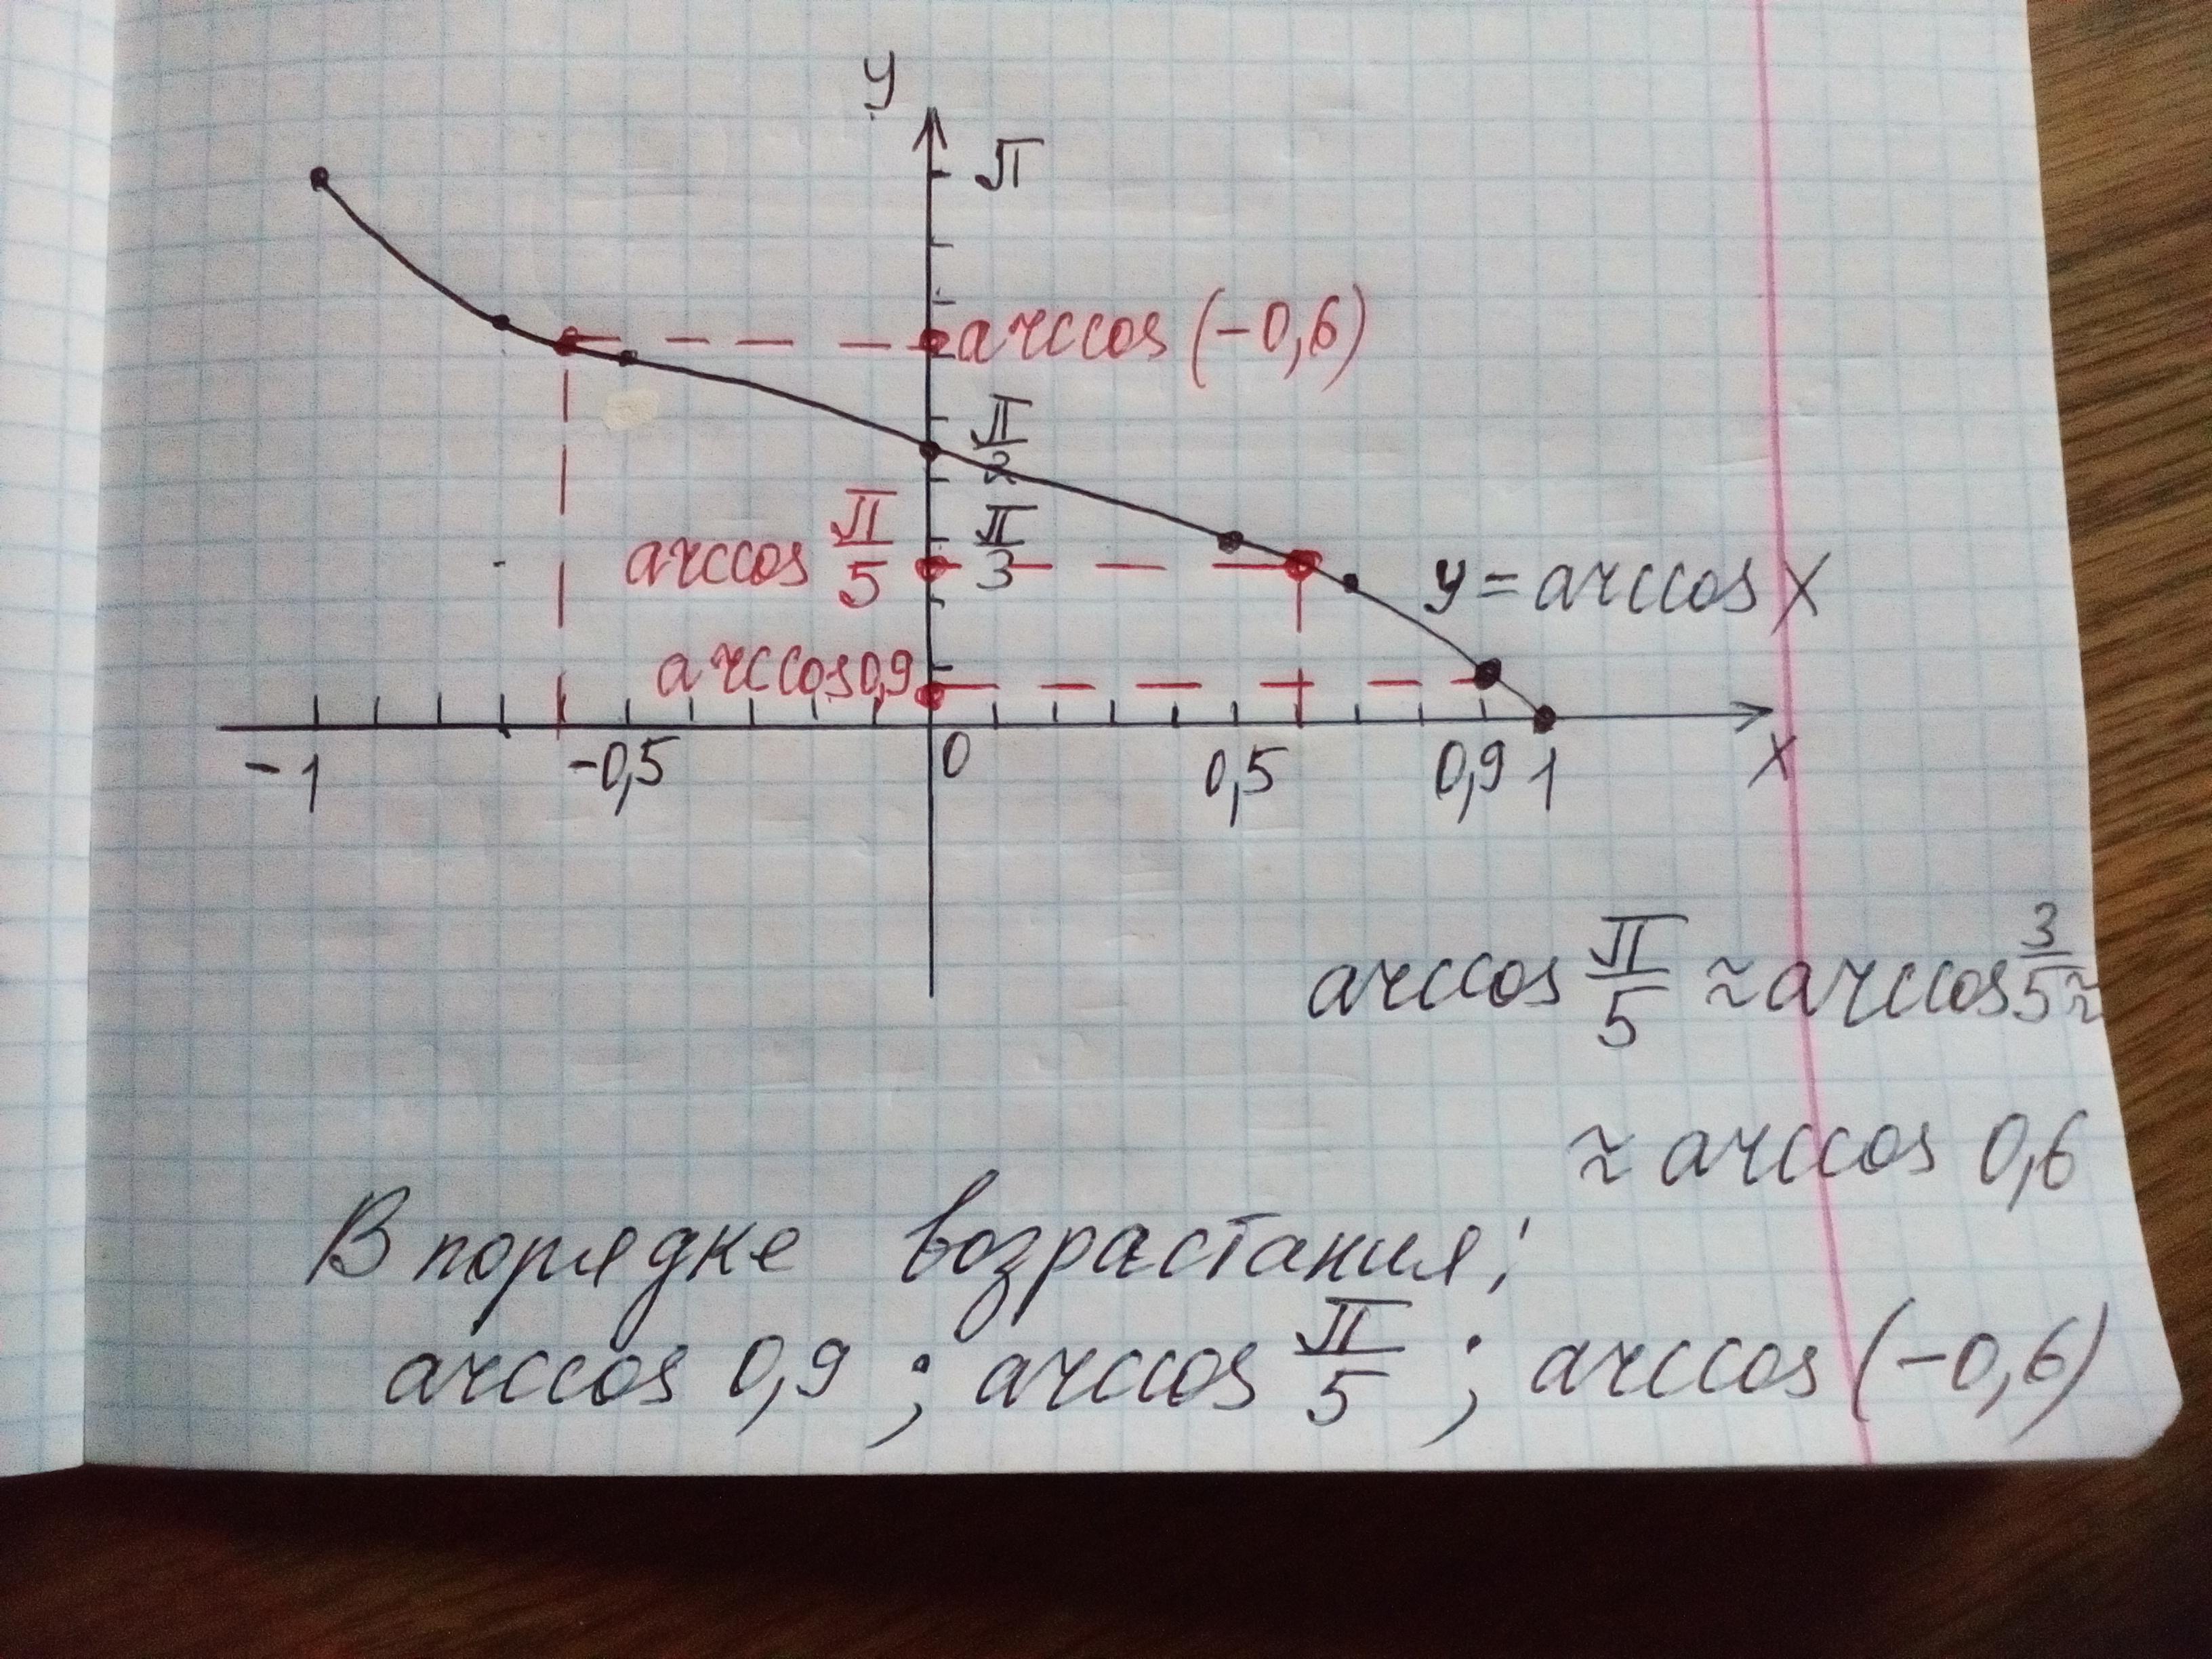 y
π
arccos (-0,6)
π/2
arccos π/5
π/3
y = arccos x
arccos 0,9
-1 -0,5 0 0,5 0,9 1 x
arccos π/5 ≈ arccos 3/5 ≈
≈ arccos 0,6
В порядке возрастания:
arccos 0,9 ; arccos π/5 ; arccos (-0,6)